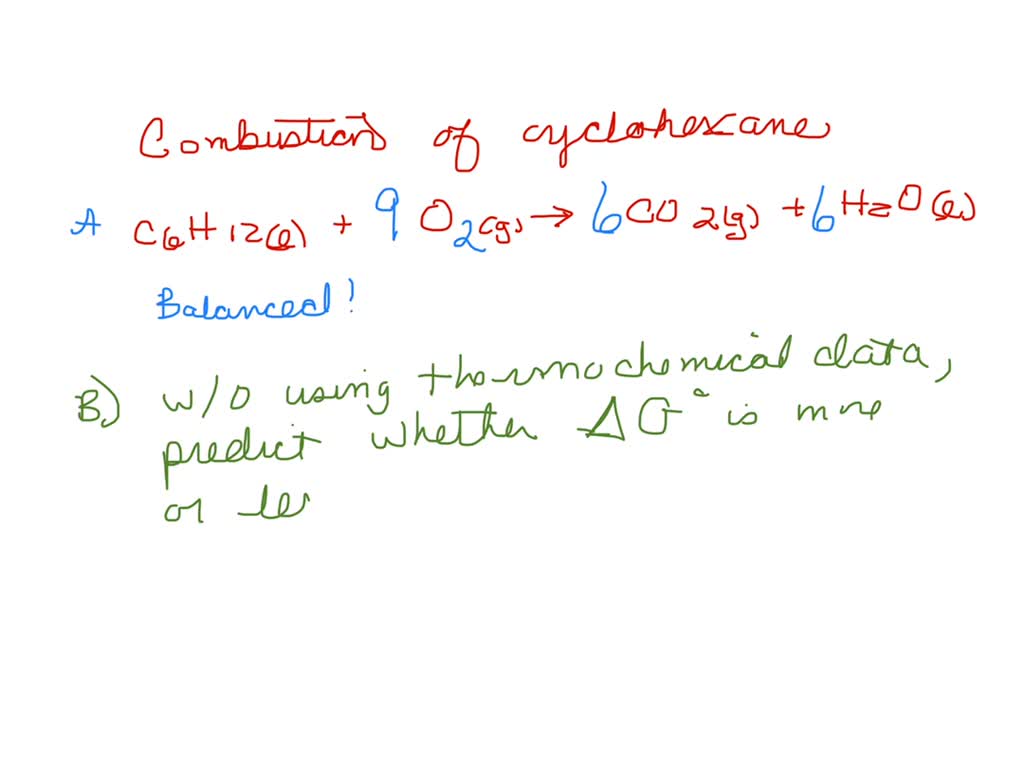 Combustion of cyclohexane
A C6H12(l) + 9 O2(g) → 6CO2(g) + 6H2O(l)
Balanced!
B) w/o using thermochemical data,
predict whether ΔG° is more
or les